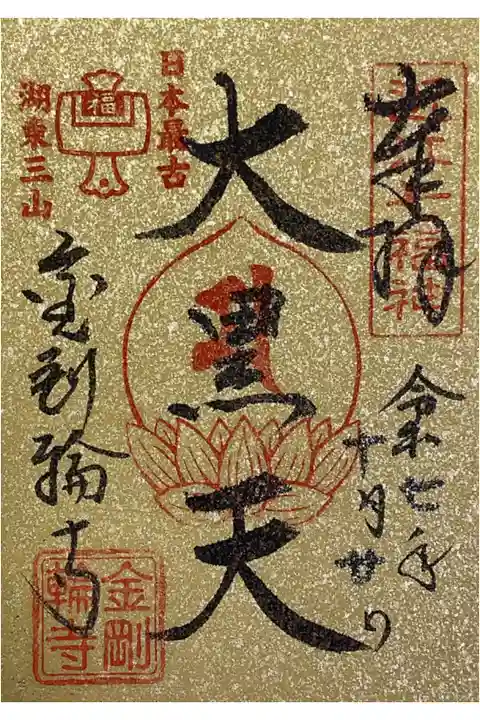 奉拝
近江七福神
令和七年
十月廿日
大黒天
日本最古
湖東三山
福
金剛輪寺
金剛
輪寺